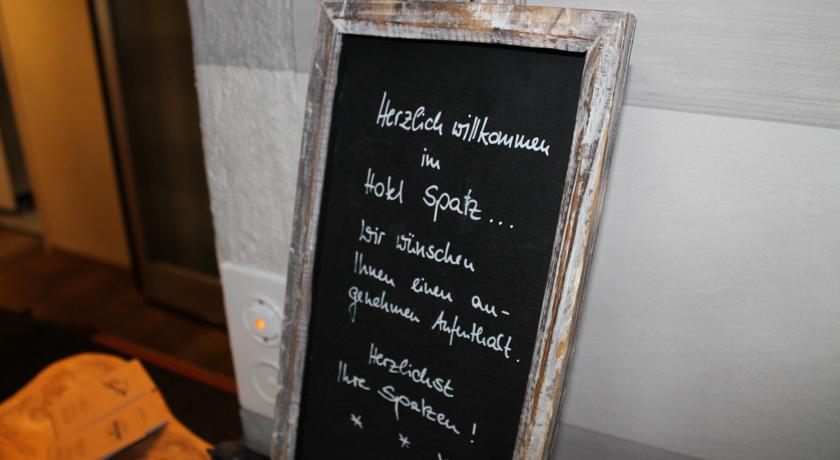 Herzlich willkommen
im
Hotel Spatz...
Wir wünschen
Ihnen einen an-
genehmen Aufenthalt.
Herzlichst
Ihre Spatzen!
* *